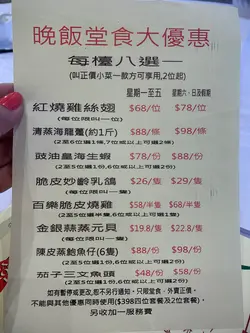 晚飯堂食大優惠
每檯八選一
(叫正價小菜一款方可享用,2位起)
星期一至五 星期六、日及假期
紅燒雞絲翅 $68/位 $78/位
(每位限叫一位)
清蒸海龍躉(約1斤) $88/條 $98/條
(2至6位選1條,7位或以上可選2條)
豉油皇海生蝦 $78/份 $88/份
(2至5位選1份,6位或以上可選2份)
脆皮妙齡乳鴿 $26/隻 $29/隻
(每位限叫一隻)
百樂脆皮燒雞 $58/半隻 $68/半隻
(2至5位選半隻,6位或以上可選1隻)
金銀蒜蒸元貝 $19.8/隻 $22.8/隻
(每位限叫一隻)
陳皮蒸鮑魚仔(6隻) $88/份 $98/份
(2至5位選1份,6位或以上可選2份)
茄子三文魚頭 $48/份 $58/份
(2至5位選1份,6位或以上可選2份)
如有暫停或更改,恕不另行通知。只限堂食、外賣正價。
不能與其他優惠同時使用($398四位套餐及2位套餐),
另收加一服務費